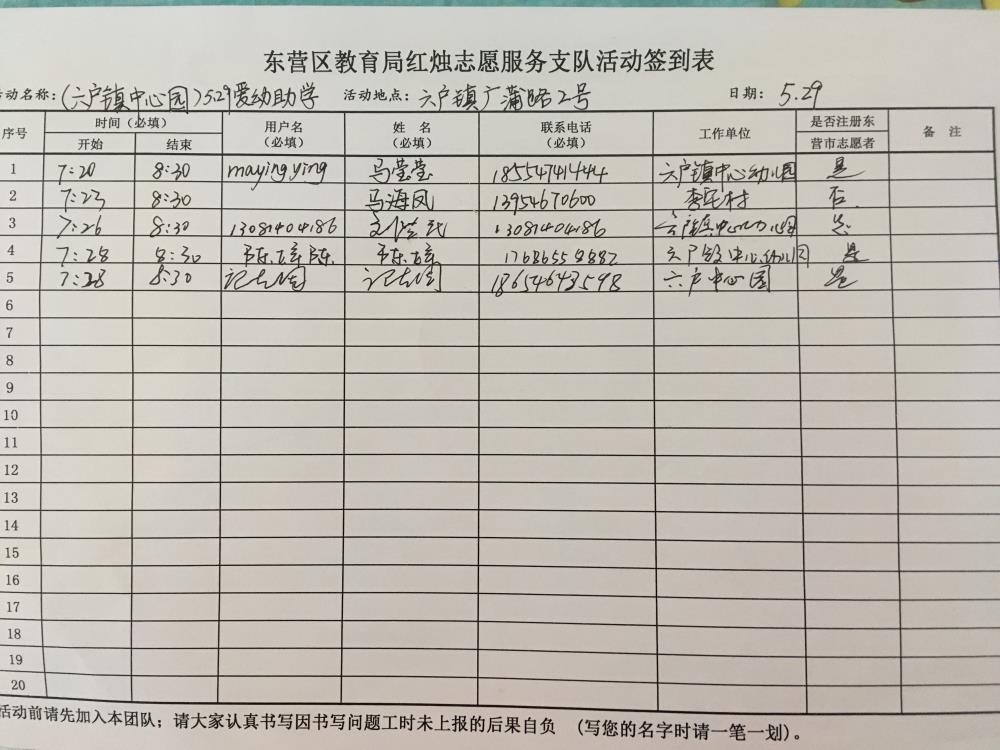 东营区教育局红烛志愿服务支队活动签到表
活动名称:(六户镇中心园)5.29爱幼助学 活动地点:六户镇广蒲路2号 日期: 5.29
序号 时间(必填) 用户名 姓 名 联系电话 工作单位 是否注册东 备 注
开始 结束 (必填) (必填) (必填) 营市志愿者
1 7:20 8:30 mayingying 马莹莹 18554741444 六户镇中心幼儿园 是
2 7:23 8:30 马海凤 13954670600 李屯村 否
3 7:26 8:30 13081404186 13081404186 六户镇中心幼儿园
4 7:28 8:30 六户镇中心幼儿园 是
5 7:28 8:30 18654643598 六户中心园 是
6
7
8
9
10
11
12
13
14
15
16
17
18
19
20
活动前请先加入本团队;请大家认真书写因书写问题工时未上报的后果自负 (写您的名字时请一笔一划)。